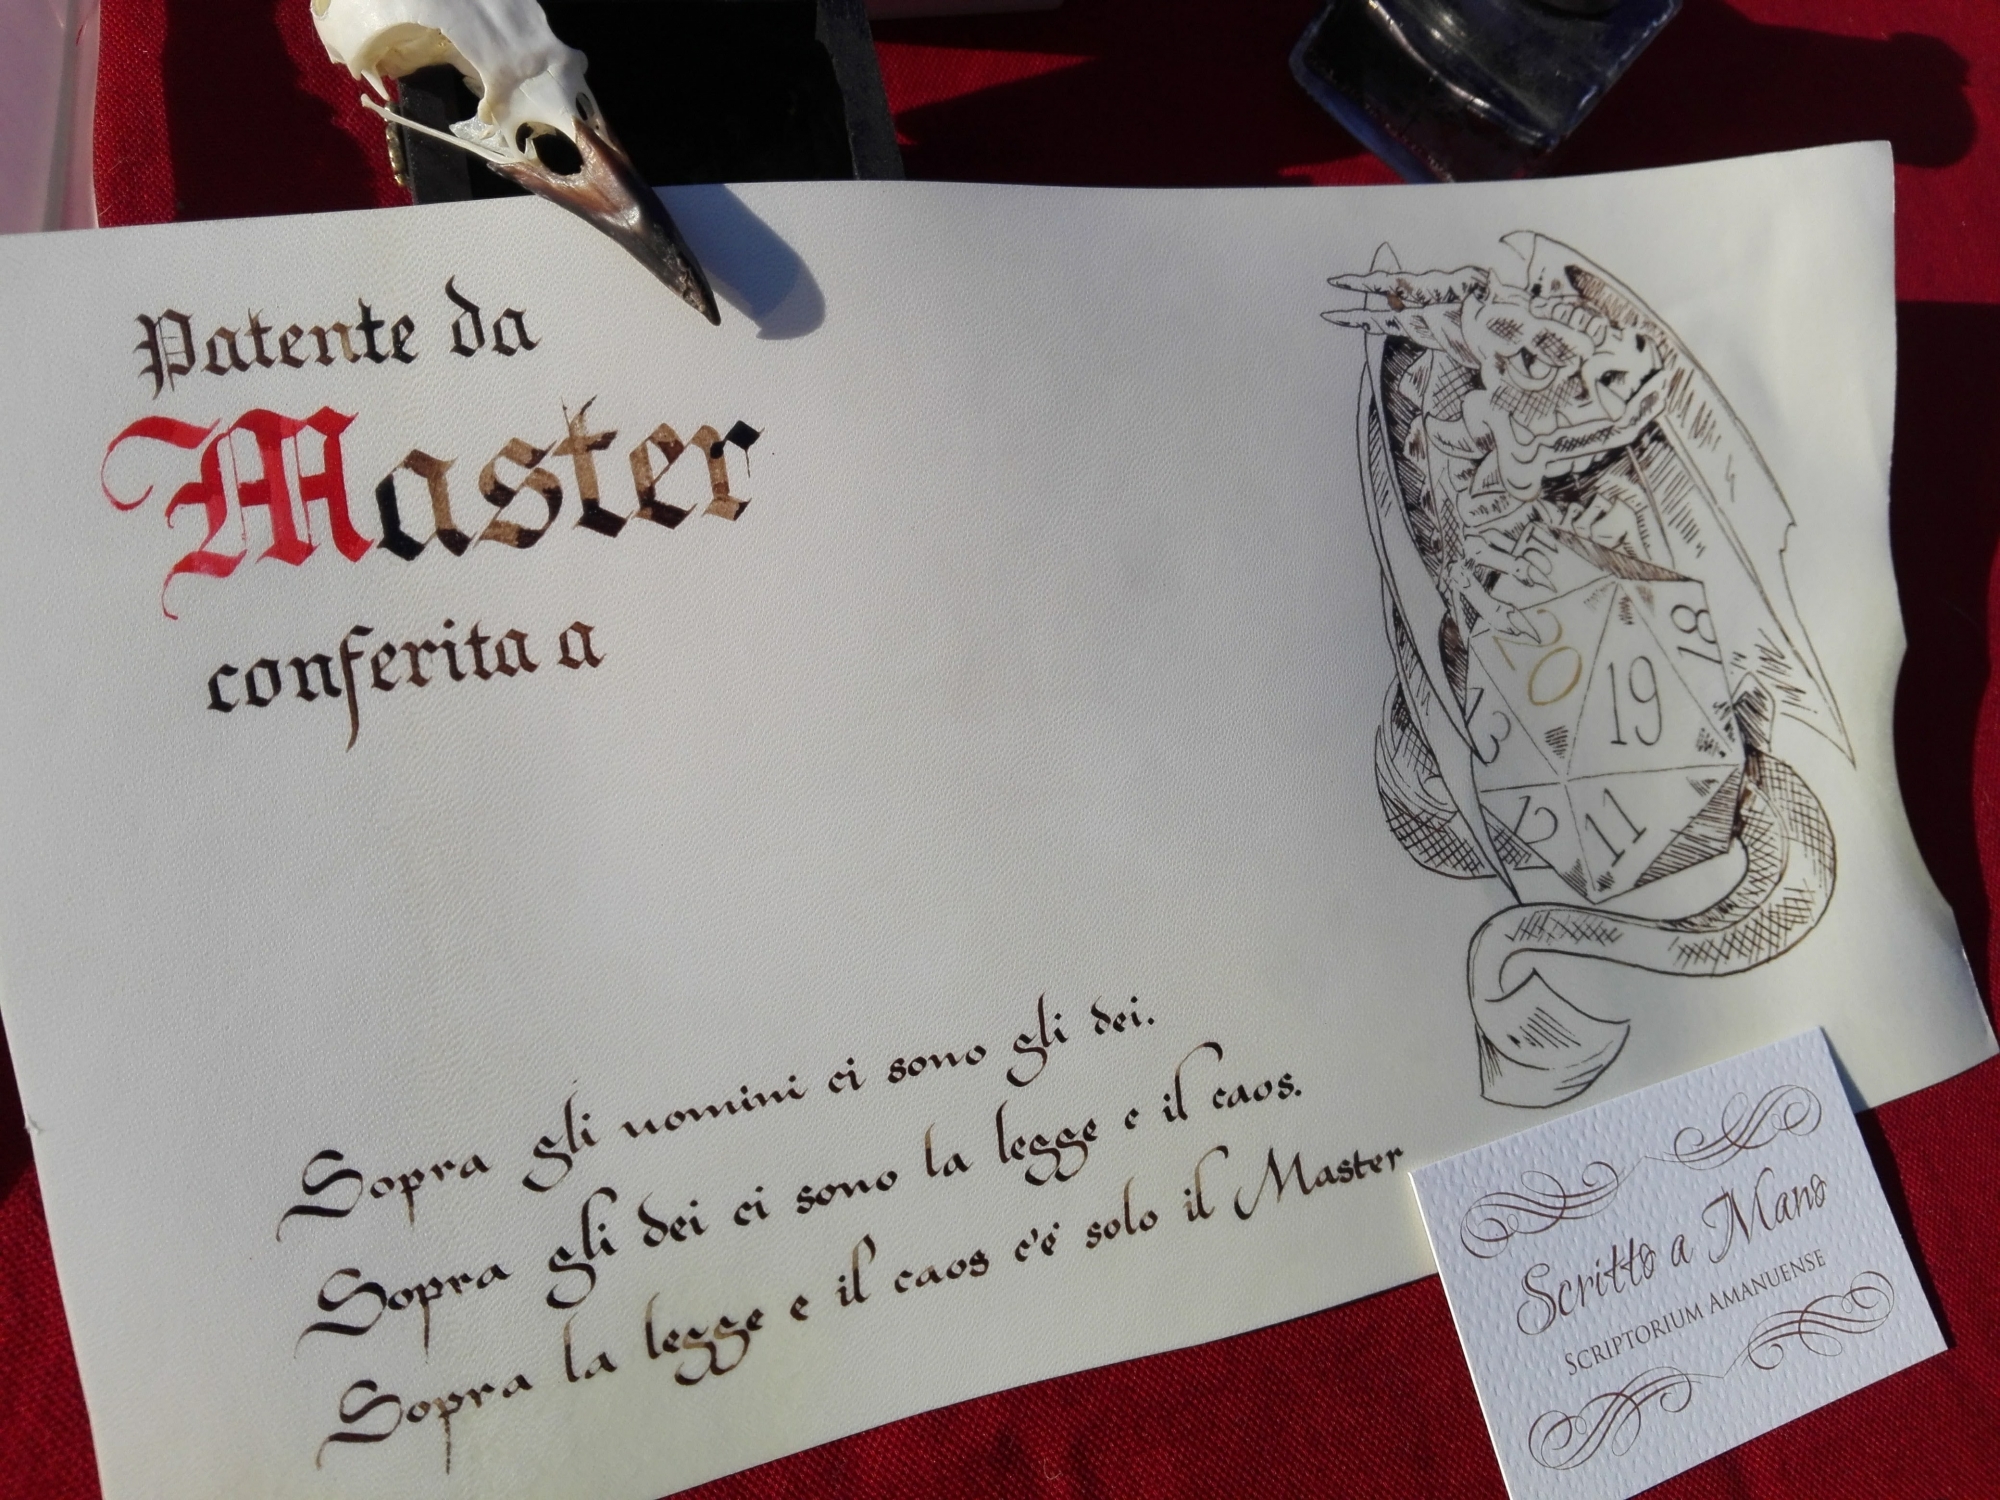 Patente da
Master
conferita a
20
19
18
13
12
11
Sopra gli uomini ci sono gli dei.
Sopra gli dei ci sono la legge e il caos.
Sopra la legge e il caos c'é solo il Master
Scritto a Mano
SCRIPTORIUM AMANUENSE